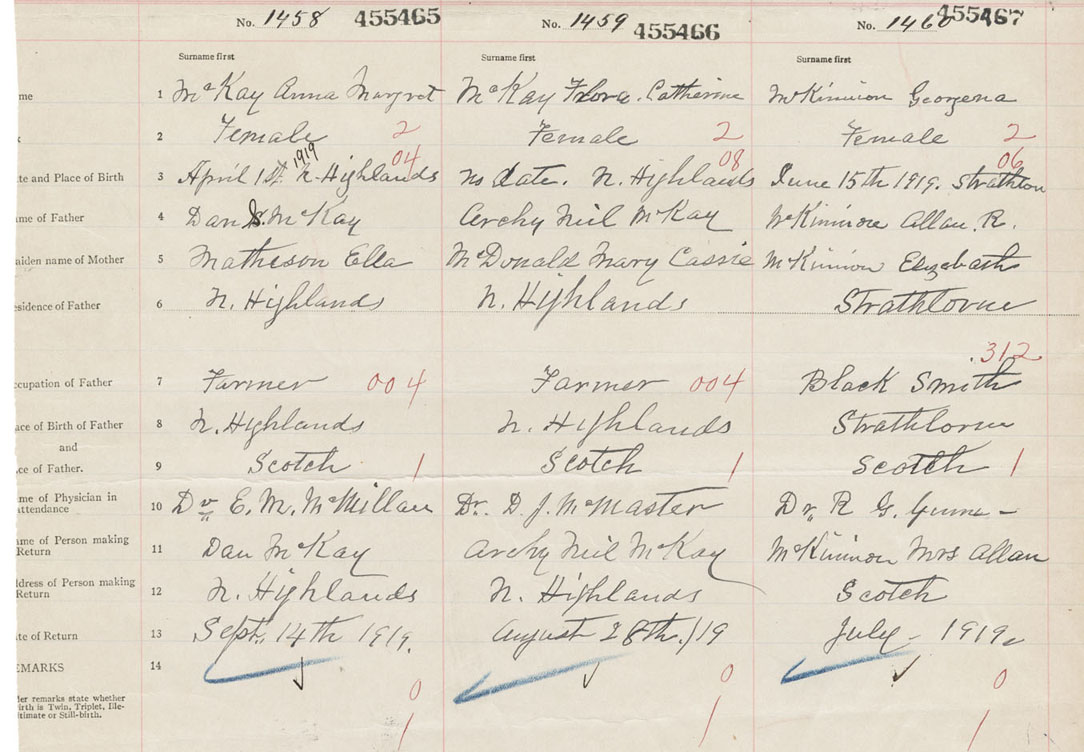 No. 1458 455465 No. 1459 455466 No. 1460 455467
Surname first Surname first Surname first
me 1 McKay Anna Margret McKay Flora Catherine McKinnon Georgena
x 2 Female 2 Female 2 Female 2
1919 04 08 06
ate and Place of Birth 3 April 1st N. Highlands no date. N. Highlands June 15th 1919. Strathlorn
me of Father 4 Dan McKay Archy Neil McKay McKinnon Allan R.
aiden name of Mother 5 Matheson Ella McDonald Mary Cassie McKinnon Elizabath
esidence of Father 6 N. Highlands N. Highlands Strathlorne
.312
ccupation of Father 7 Farmer 004 Farmer 004 Black Smith
ace of Birth of Father 8 N. Highlands N. Highlands Strathlorne
and
ce of Father. 9 Scotch 1 Scotch 1 Scotch 1
me of Physician in
ttendance 10 Dr. E. M. McMillan Dr. D. J. McMaster Dr. R G.
me of Person making
Return 11 Dan McKay Archy Neil McKay McKinnon Mrs Allan
ddress of Person making
Return 12 N. Highlands N. Highlands Scotch
te of Return 13 Sept. 14th 1919. August 28th /19 July - 1919
EMARKS 14
der remarks state whether 0 0 0
irth is Twin, Triplet, Ille-
itimate or Still-birth. 1 1 1